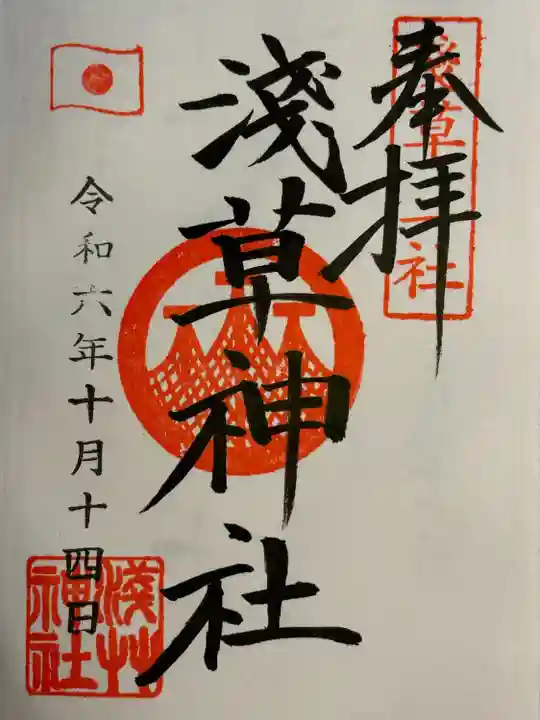 奉拝
淺草神社
淺草神社
令和六年十月十四日
淺草神社